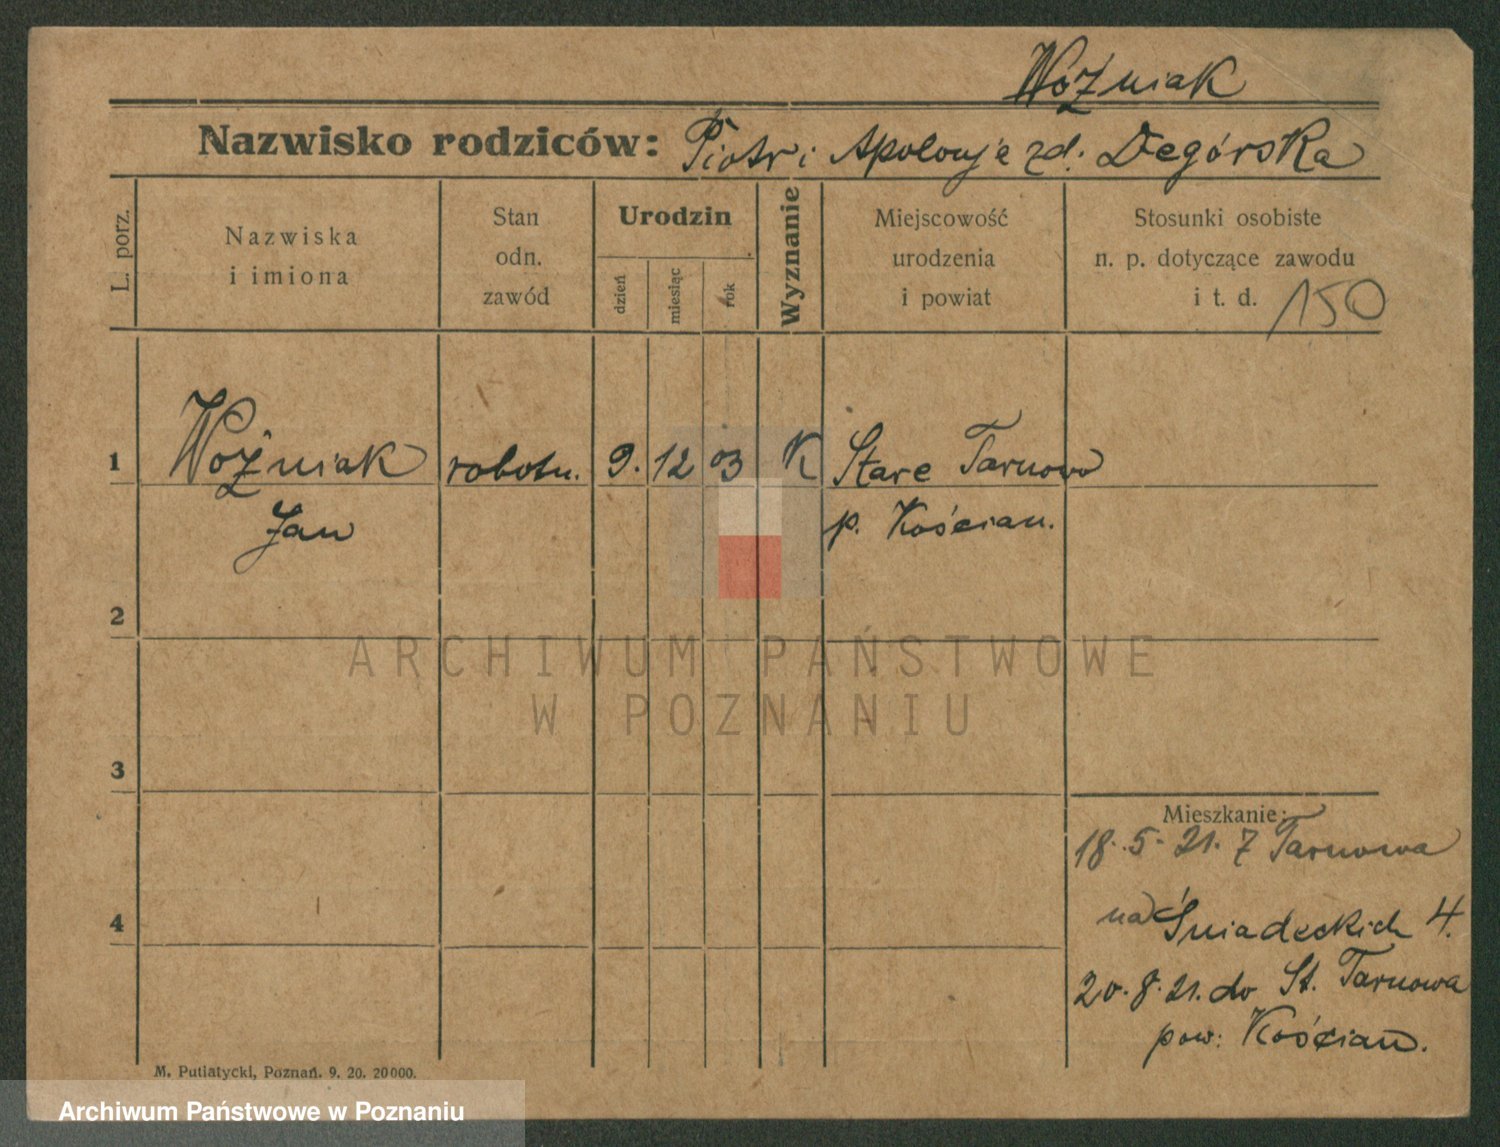 Woźniak
Nazwisko rodziców: Piotr i Apolonje zd. Degórska
L. porz.
Nazwiska
i imiona
Stan
odn.
zawód
Urodzin
dzień
miesiąc
rok
Wyznanie
Miejscowość
urodzenia
i powiat
Stosunki osobiste
n. p. dotyczące zawodu
i t. d.
150
1 Woźniak robotn. 9. 12 03 K Stare Tarnowo
Jan p. Kościan.
2
3
4
ARCHIWUM PAŃSTWOWE
W POZNANIU
Mieszkanie:
18.5.21. z Tarnowa
na Śniadeckich 4.
20.8.21. do St. Tarnowa
pow: Kościan.
M. Putiatycki, Poznań. 9. 20. 20000.
Archiwum Państwowe w Poznaniu